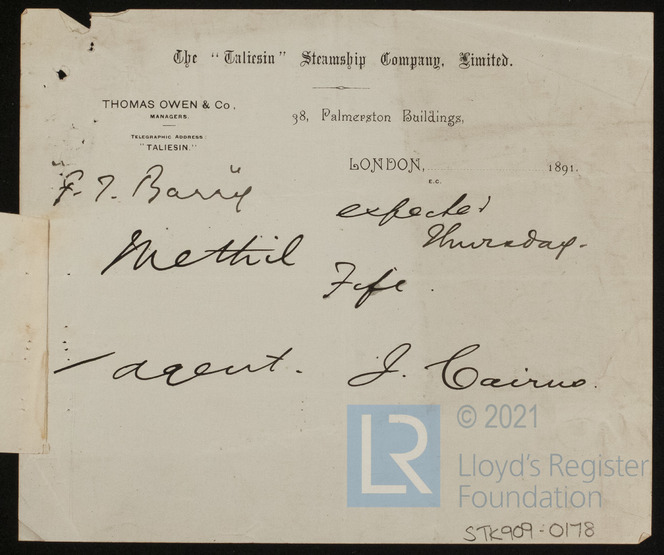 The "Taliesin" Steamship Company, Limited.
THOMAS OWEN & Co,
MANAGERS.
TELEGRAPHIC ADDRESS:
"TALIESIN."
38, Palmerston Buildings,
LONDON, 1891.
E.C.
F. T. Barry expected
Thursday.
Methil
Fife.
agent. J. Cairns.
LR
© 2021
Lloyd's Register
Foundation
STK909-0178